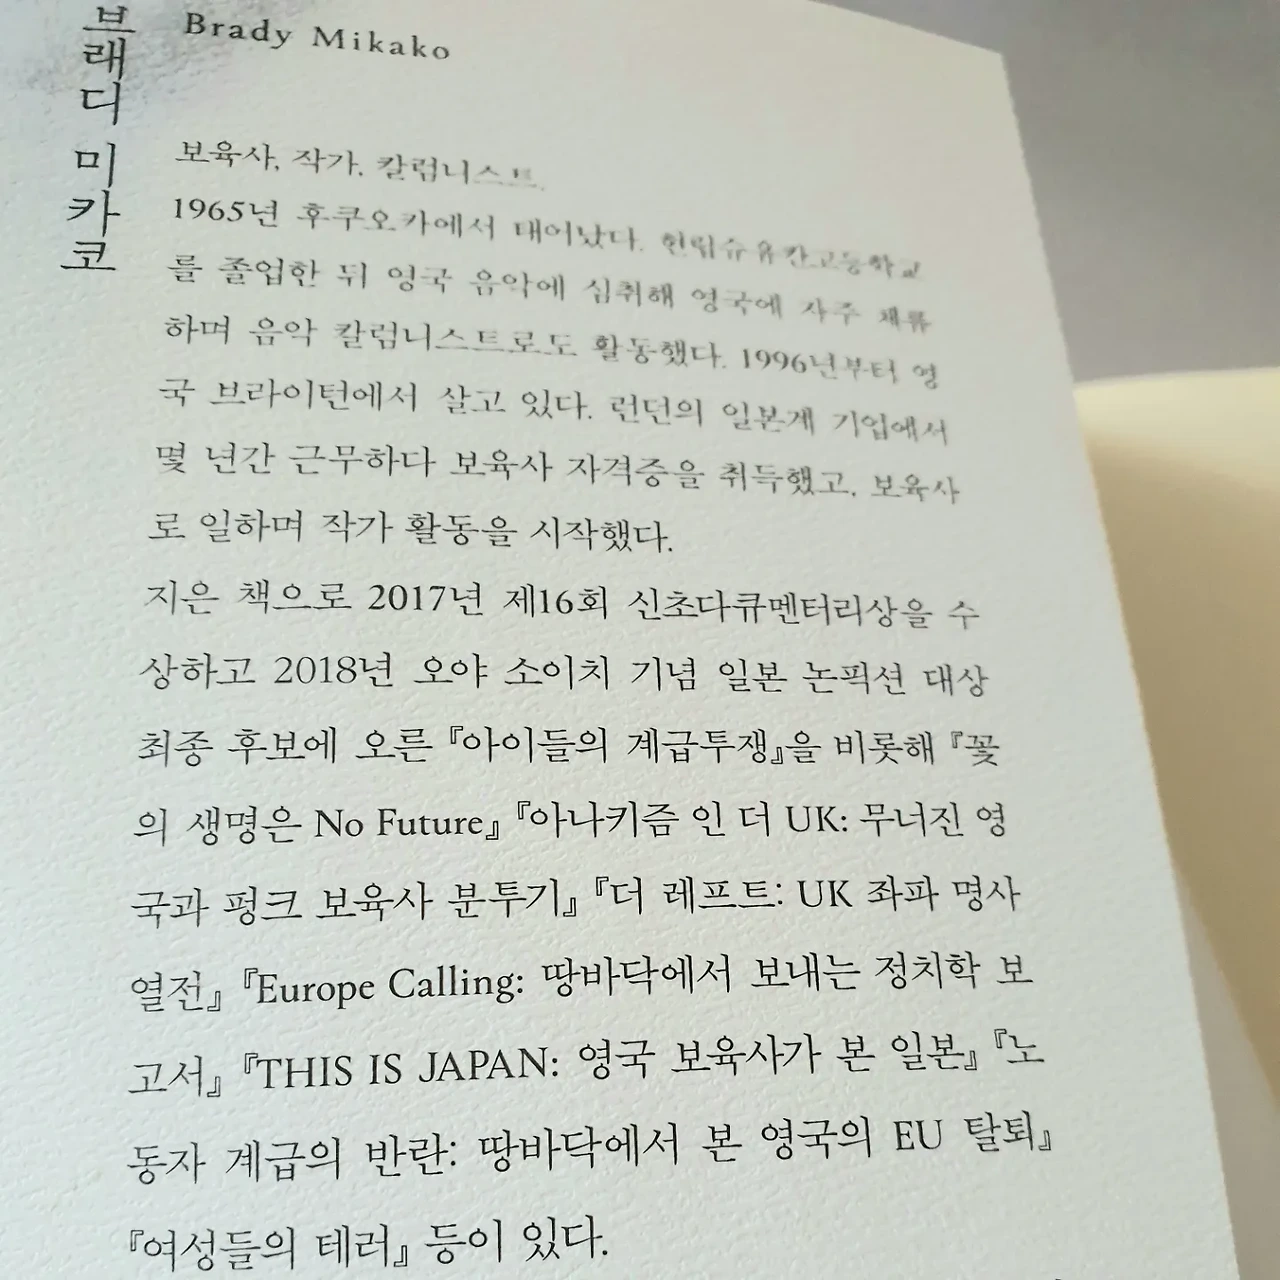 브래디 미카코
Brady Mikako
보육사, 작가, 칼럼니스트.
1965년 후쿠오카에서 태어났다. 현립슈유칸고등학교
를 졸업한 뒤 영국 음악에 심취해 영국에 자주 체류
하며 음악 칼럼니스트로도 활동했다. 1996년부터 영
국 브라이턴에서 살고 있다. 런던의 일본계 기업에서
몇 년간 근무하다 보육사 자격증을 취득했고, 보육사
로 일하며 작가 활동을 시작했다.
지은 책으로 2017년 제16회 신초다큐멘터리상을 수
상하고 2018년 오야 소이치 기념 일본 논픽션 대상
최종 후보에 오른 『아이들의 계급투쟁』을 비롯해 『꽃
의 생명은 No Future』 『아나키즘 인 더 UK: 무너진 영
국과 펑크 보육사 분투기』 『더 레프트: UK 좌파 명사
열전』 『Europe Calling: 땅바닥에서 보내는 정치학 보
고서』 『THIS IS JAPAN: 영국 보육사가 본 일본』 『노
동자 계급의 반란: 땅바닥에서 본 영국의 EU 탈퇴』
『여성들의 테러』 등이 있다.